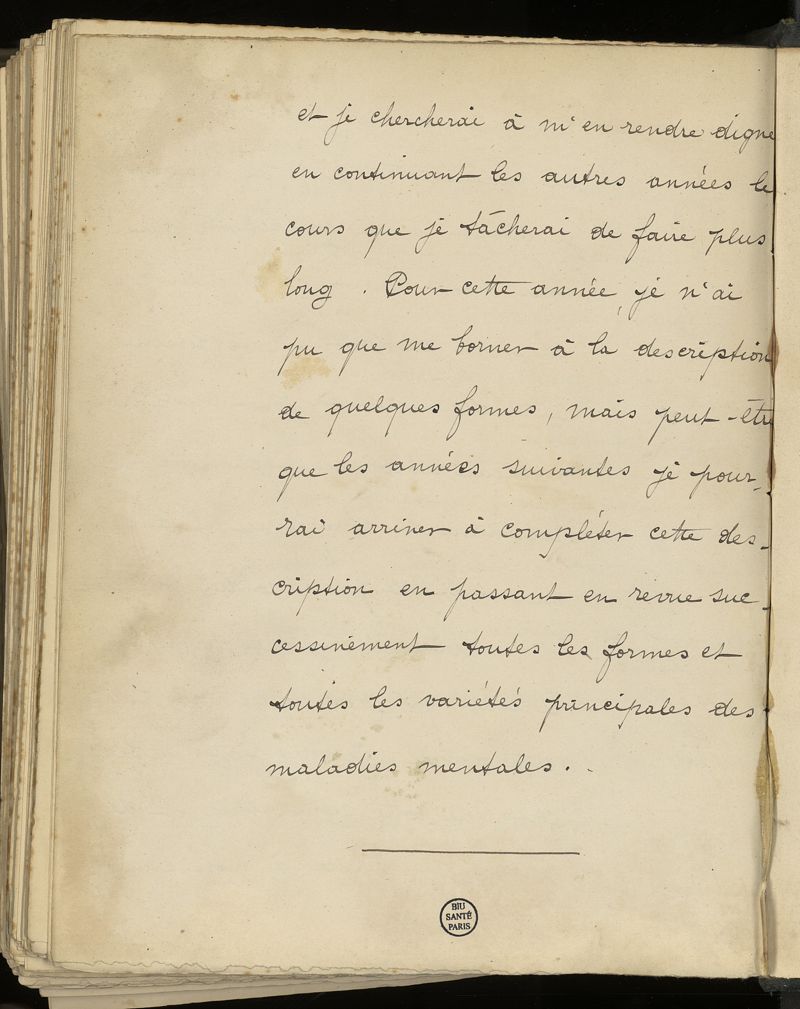 et je chercherai à m'en rendre digne
en continuant les autres années le
cours que je tâcherai de faire plus
long. Pour cette année, je n'ai
pu que me borner à la description
de quelques formes, mais peut-être
que les années suivantes je pour-
rai arriver à compléter cette des-
cription en passant en revue suc-
cessivement toutes les formes et
toutes les variétés principales des
maladies mentales.
BIU
SANTÉ
PARIS